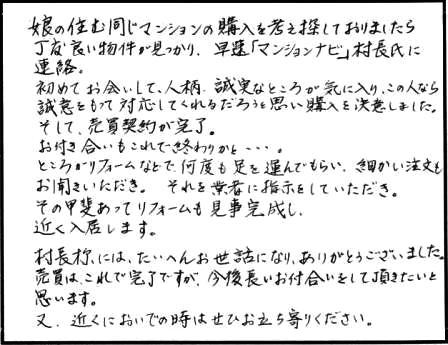 娘の住む同じマンションの購入を考え探しておりましたら
丁度良い物件が見つかり、早速「マンションナビ」村長氏に
連絡。
初めてお会いして、人柄、誠実なところが気に入り、この人なら
誠意をもって対応してくれるだろうと思い購入を決意しました。
そして、売買契約が完了。
お付き合いもこれで終わりかと・・・。
ところがリフォームなどで、何度も足を運んでもらい、細かい注文も
お聞きいただき。 それを業者に指示をしていただき。
その甲斐あってリフォームも見事完成し、
近く入居します。
村長様には、たいへんお世話になり、ありがとうございました。
売買は、これで完了ですが、今後長いお付合いをして頂きたいと
思います。
又、近くにおいでの時はぜひお立ち寄りください。